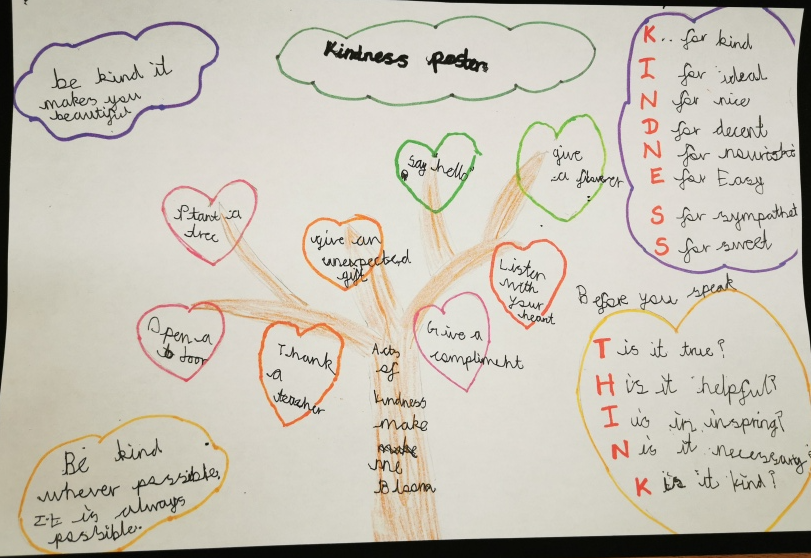 Kindness poster
be kind it
makes you
beautiful
K.. for kind
I for ideal
N for nice
D for decent
N for nourishi
E for Easy
S for sympathet
S for sweet
Say "hello"
give
a flower
Plant a
tree
give an
unexpected
gift
Listen
with
your
heart
Open a
door
Thank
a
teacher
Give a
compliment
Acts
of
kindness
make
me
Bloom
Before you speak
T is it true?
H is it helpful?
I is in inspring?
N is it necessary?
K is it kind?
Be kind
whever possible,
It is always
possible.